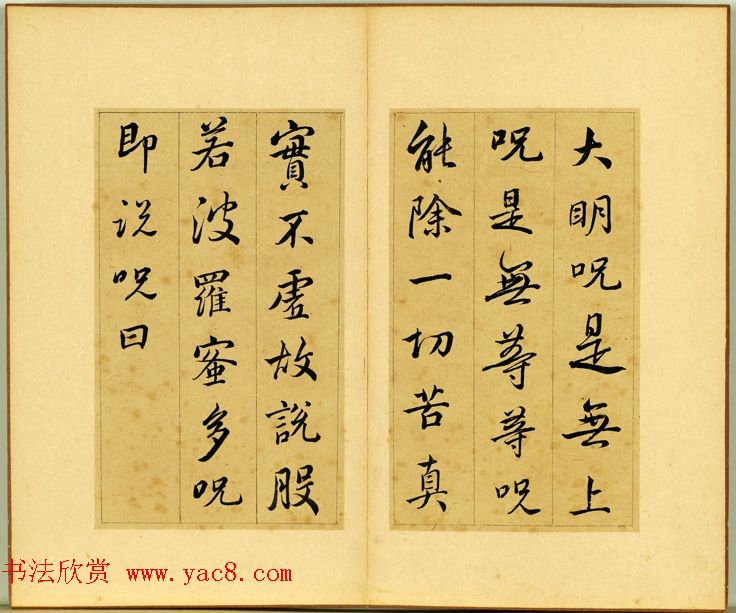 大明呪是無上
呪是無等等呪
能除一切苦真
實不虛故說般
若波羅蜜多呪
即說呪曰
书法欣赏 www.yac8.com